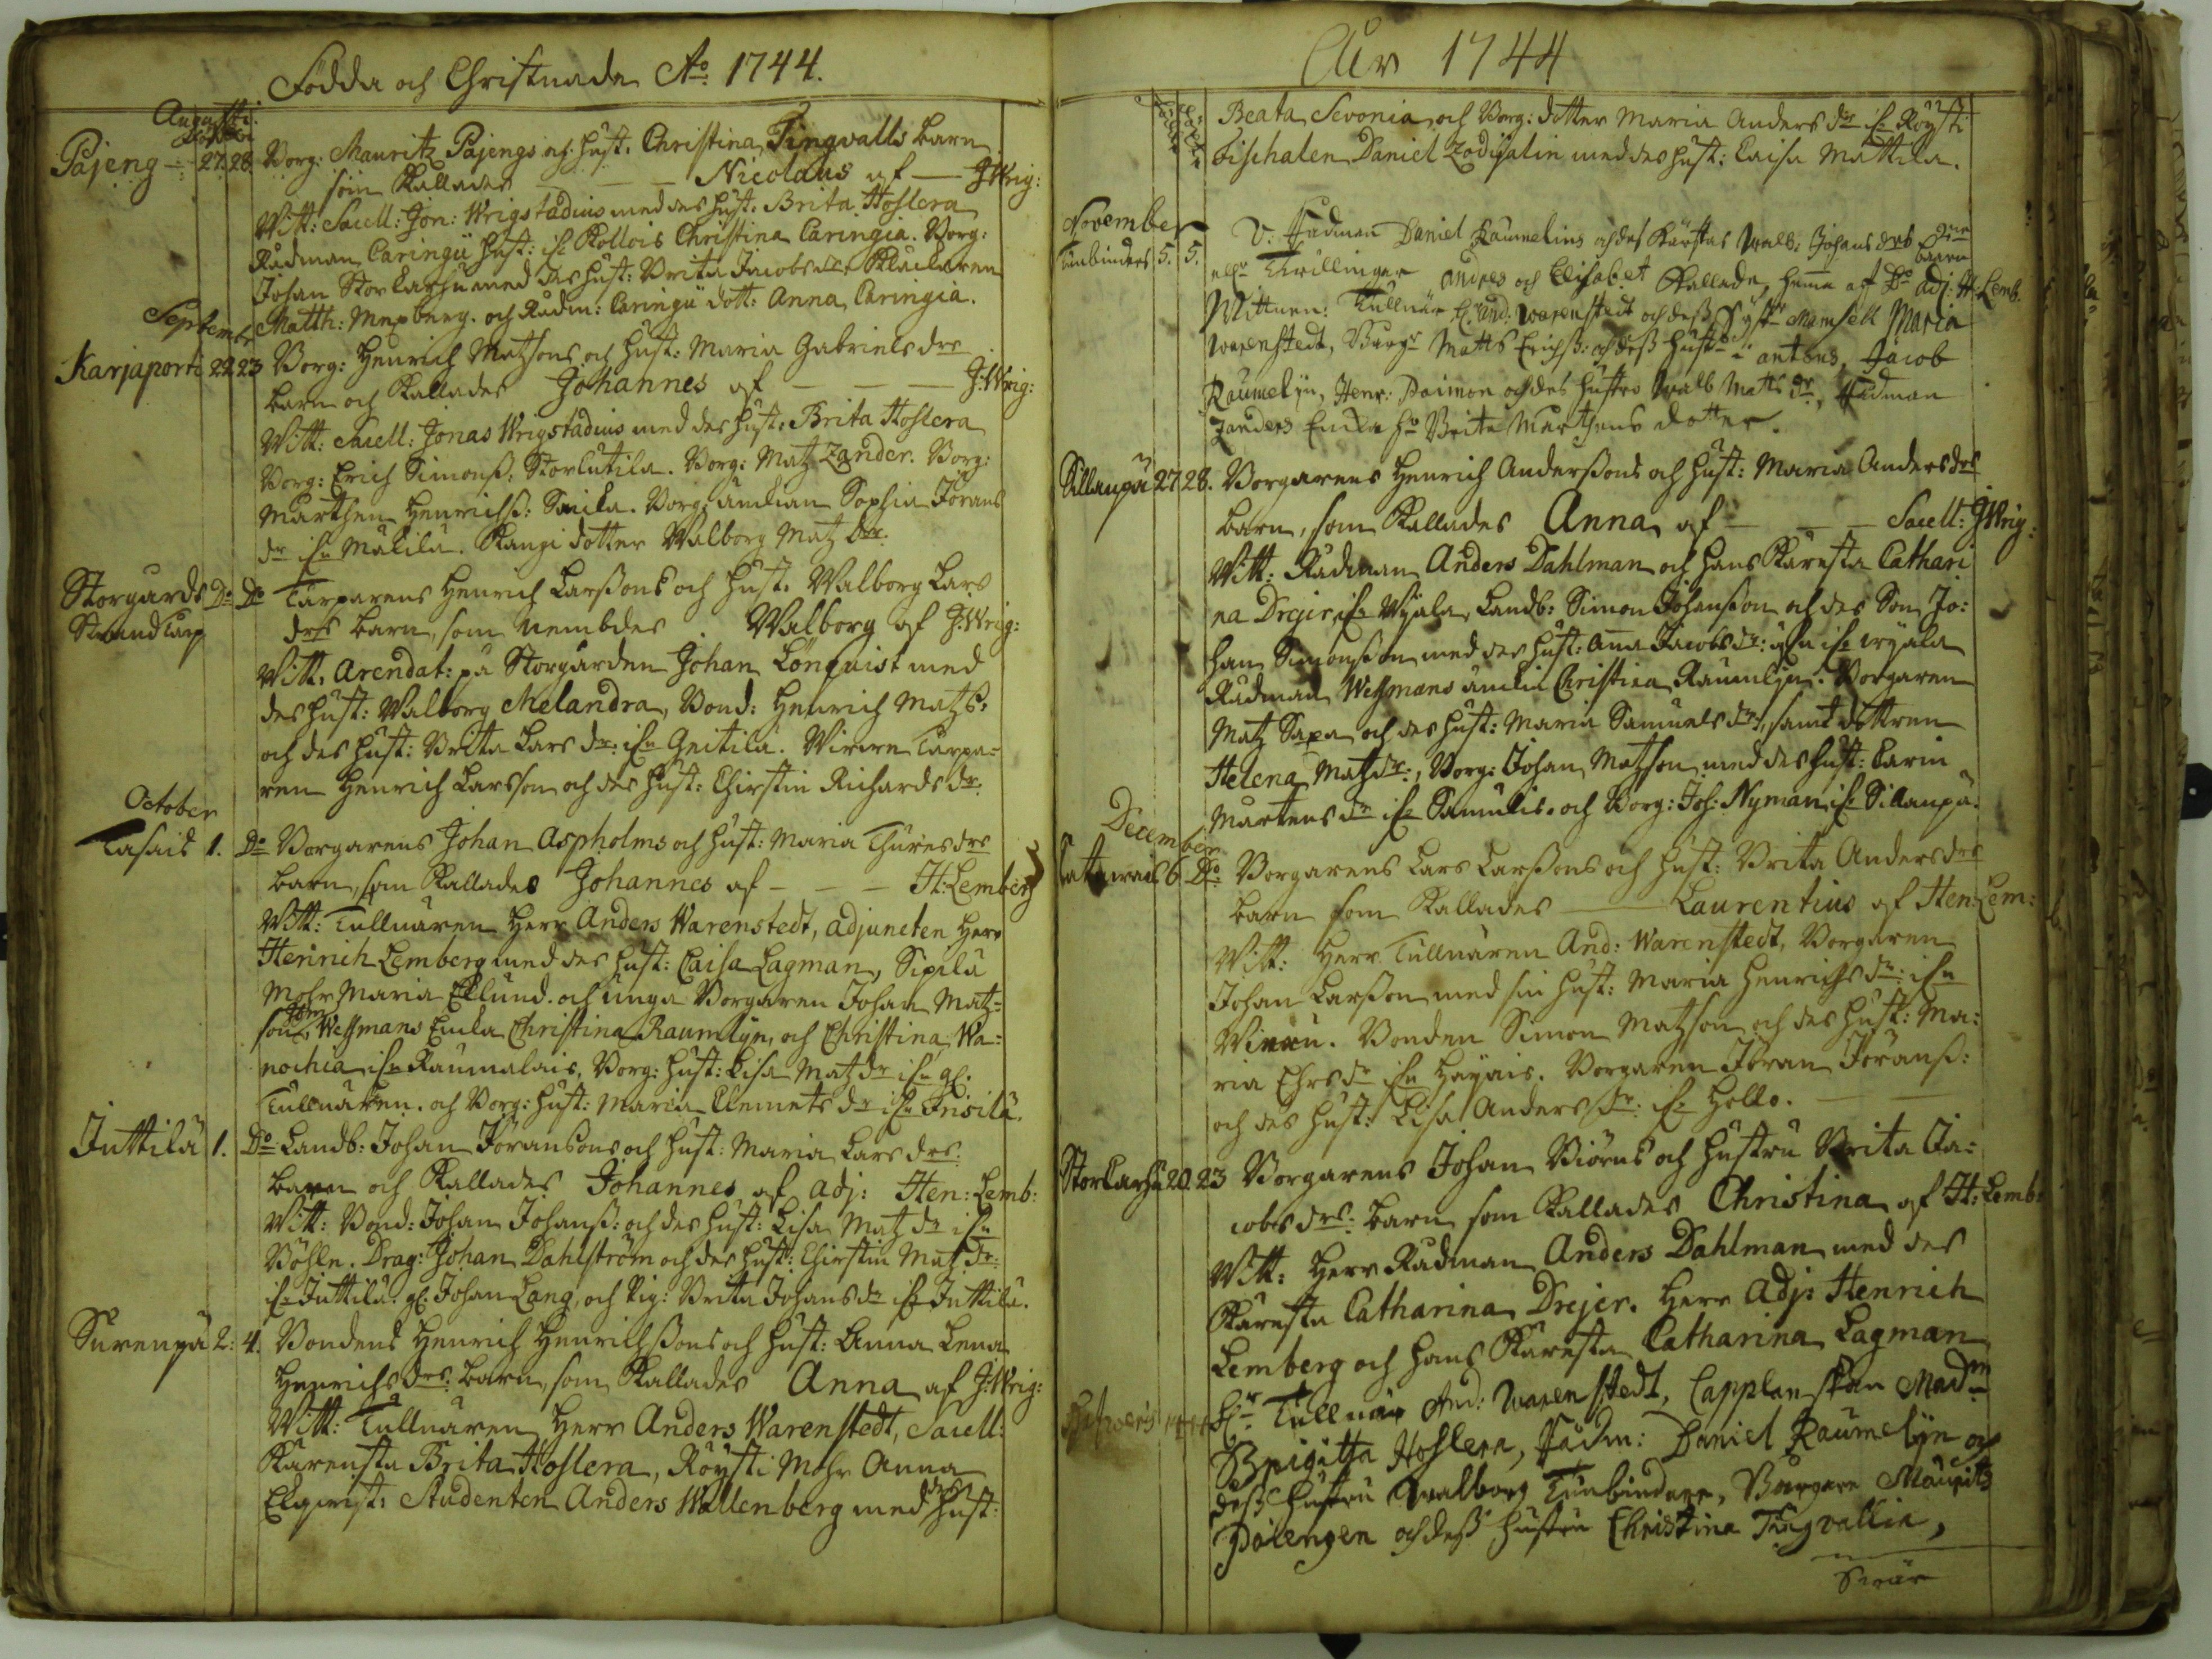 Födda och Christnade Ao: 1744.
Augusti.
Pajeng 27. 28. Borg: Mauritz Pajengs og hust. Christina Tingvalls barn
som kallades — — Nicolaus af — J Wrig:
Witt: Sacell: Jon: Wrigstadius med des hust. Brita Hoslera
Rådman Caringii hust: ifr. Kollois Christina Caringia. Borg:
Johan Storkarhu med des hust: Brita Jacobs dr.
Matth: och Rådm: Caringii dott: Anna Caringia.
September
Karjaporti 22 23 Borg: Henrich Matzsons och hust: Maria Gabriels drs
barn och kallades Johannes af — — — J: Wrig:
Witt: Sacell: Jonas Wrigstadius med des hust: Brita Hoslera
Borg: Erich Simonss: Storlutila. Borg: Matz Zander. Borg:
Mårthen Henrichss: Borg: änckan Sophia Jörans
dr ifr Mälilä. dotter Walborg Matz dr.
Storgårds Do Do Torparens Henrich Larssons och hust. Walborg Lars
Strandtorp drs barn, som nembdes Walborg af J: Wrig:
Witt. Arendat: på Storgården Johan Lönquist med
des hust: Walborg Melandra, Bond: Henrich Matzs:
och des hust: Brita Lars dr. ifr Torpa=
ren Henrich Larsson och des hust: Chirstin Richards dr.
October
Tasais 1. Do Borgarens Johan Aspholms och hust: Maria Thures drs
barn, som kallades Johannes af — — — H: Lemberg
Witt: Tullnären Herr Anders Warenstedt, adjuncten Herr
Henrich Lemberg med des hust: Caisa Lagman, Sipilä
Mohr Maria Eklund. och unga Borgaren Johan Matz=
son, Wessmans Encka Christina Raumlijn, och Christina Wa=
nochia ifr Raumalais, Borg: hust: Lisa Matz dr ifr gl:
Tullnären. och Borg: hust: Maria Clemets dr ifr Insilä.
Juttilä 1. Do Landb: Johan Jöransons och hust: Maria Lars drs.
barn och kallades Johannes af adj: Hen: Lemb:
Witt: Bond: Johan Johanss: och des hust: Lisa Matz dr ifr
Böhle. Drag: Johan Dahlström och des hust: Chirstin Matz dr:
ifr Juttilä. gl. Johan Lang, och Pig: Brita Johans dr ifr Juttila.
Surenpä 2: 4. Bondens Henrich Henrichssons och hust: Anna Lena
Henrichs drs. barn, som kallades Anna af J: Wrig:
Witt: Tullnären Herr Anders Warenstedt, Sacell:
Käresta Brita Hoslera, Röysti Mohr Anna
Studenten Anders Wallenberg med des hust:
Åhr 1744
Beata Sevonia och Borg: dotter Maria Anders dr ifr Röysti
Daniel med des hust: Caisa Mattila.
November
Tunbinders 5. 5. Rådman Daniel Raumelins och des Kärestas Walb: Johans drs
barn
Thvillingar Andres och Elisabet kallade, af Do adj: H: Lemb.
Wittnen: Tullnär Hr And: Warenstedt och dess Syster Mamsell Maria
Warenstedt, Burgr Matts Erichss: och dess hust: antons, Jacob
Raumelijn, Henr: Paimon och des hustro Walb Matts dr, Rådman
Zanders Encka hu Brita Mårthens dotter.
Sillanpä 27 28. Borgarens Henrich Anderssons och hust: Maria Anders drs
barn, som kallades Anna af — — — Sacell: J Wrig:
Witt: Rådman Anders Dahlman och hans Käresta Cathari
na Drejer, ifr Wijala Landb: Simon Johansson och des Son Jo:
han Simonsson med des hust: Anna Jacobs dr: ifr wijala
Rådman Wessmans änckia Christina Raumlijn. Borgaren
Matz Saxa och des hust: Maria Samuels dr, samt dottren
Helena Matz dr:, Borg: Johan Matzson med des hust: Carin
Mårtens dr ifr Samulis. och Borg: Joh: Nyman ifr Sillanpä.
December
6 Do Borgarens Lars Larssons och hust: Brita Anders drs
barn som kallades — Laurentius af Hen: Lem:
Witt: Herr Tullnären And: Warenstedt, Borgaren
Johan Larsson med sin hust: Maria Henrichs dr: ifr
Bonden Simon Matzson och des hust: Ma:
ria Ehrs dr ifr Borgaren Jöran Jöranss:
och des hust: Lisa Anders dr: ifr Hollo.
Storkarhu 20. 23 Borgarens Johan Biörns och hustru Brita Ja=
cobs drs: barn som kallades Christina af H: Lemb:
Witt: Herr Rådman Anders Dahlman med des
Käresta Catharina Drejer. Herr Adj: Henrich
Lemberg och hans Käresta Catharina Lagman
Hr Tullnär And: Warenstedt, Capplanskan Madm
Brigitta Hoslera, Rådm: Daniel Raumelijn och
dess hustru Walborg Tunbinder, Burgare Mauritz
Pajengen och dess hustru Christina Tingvallia,